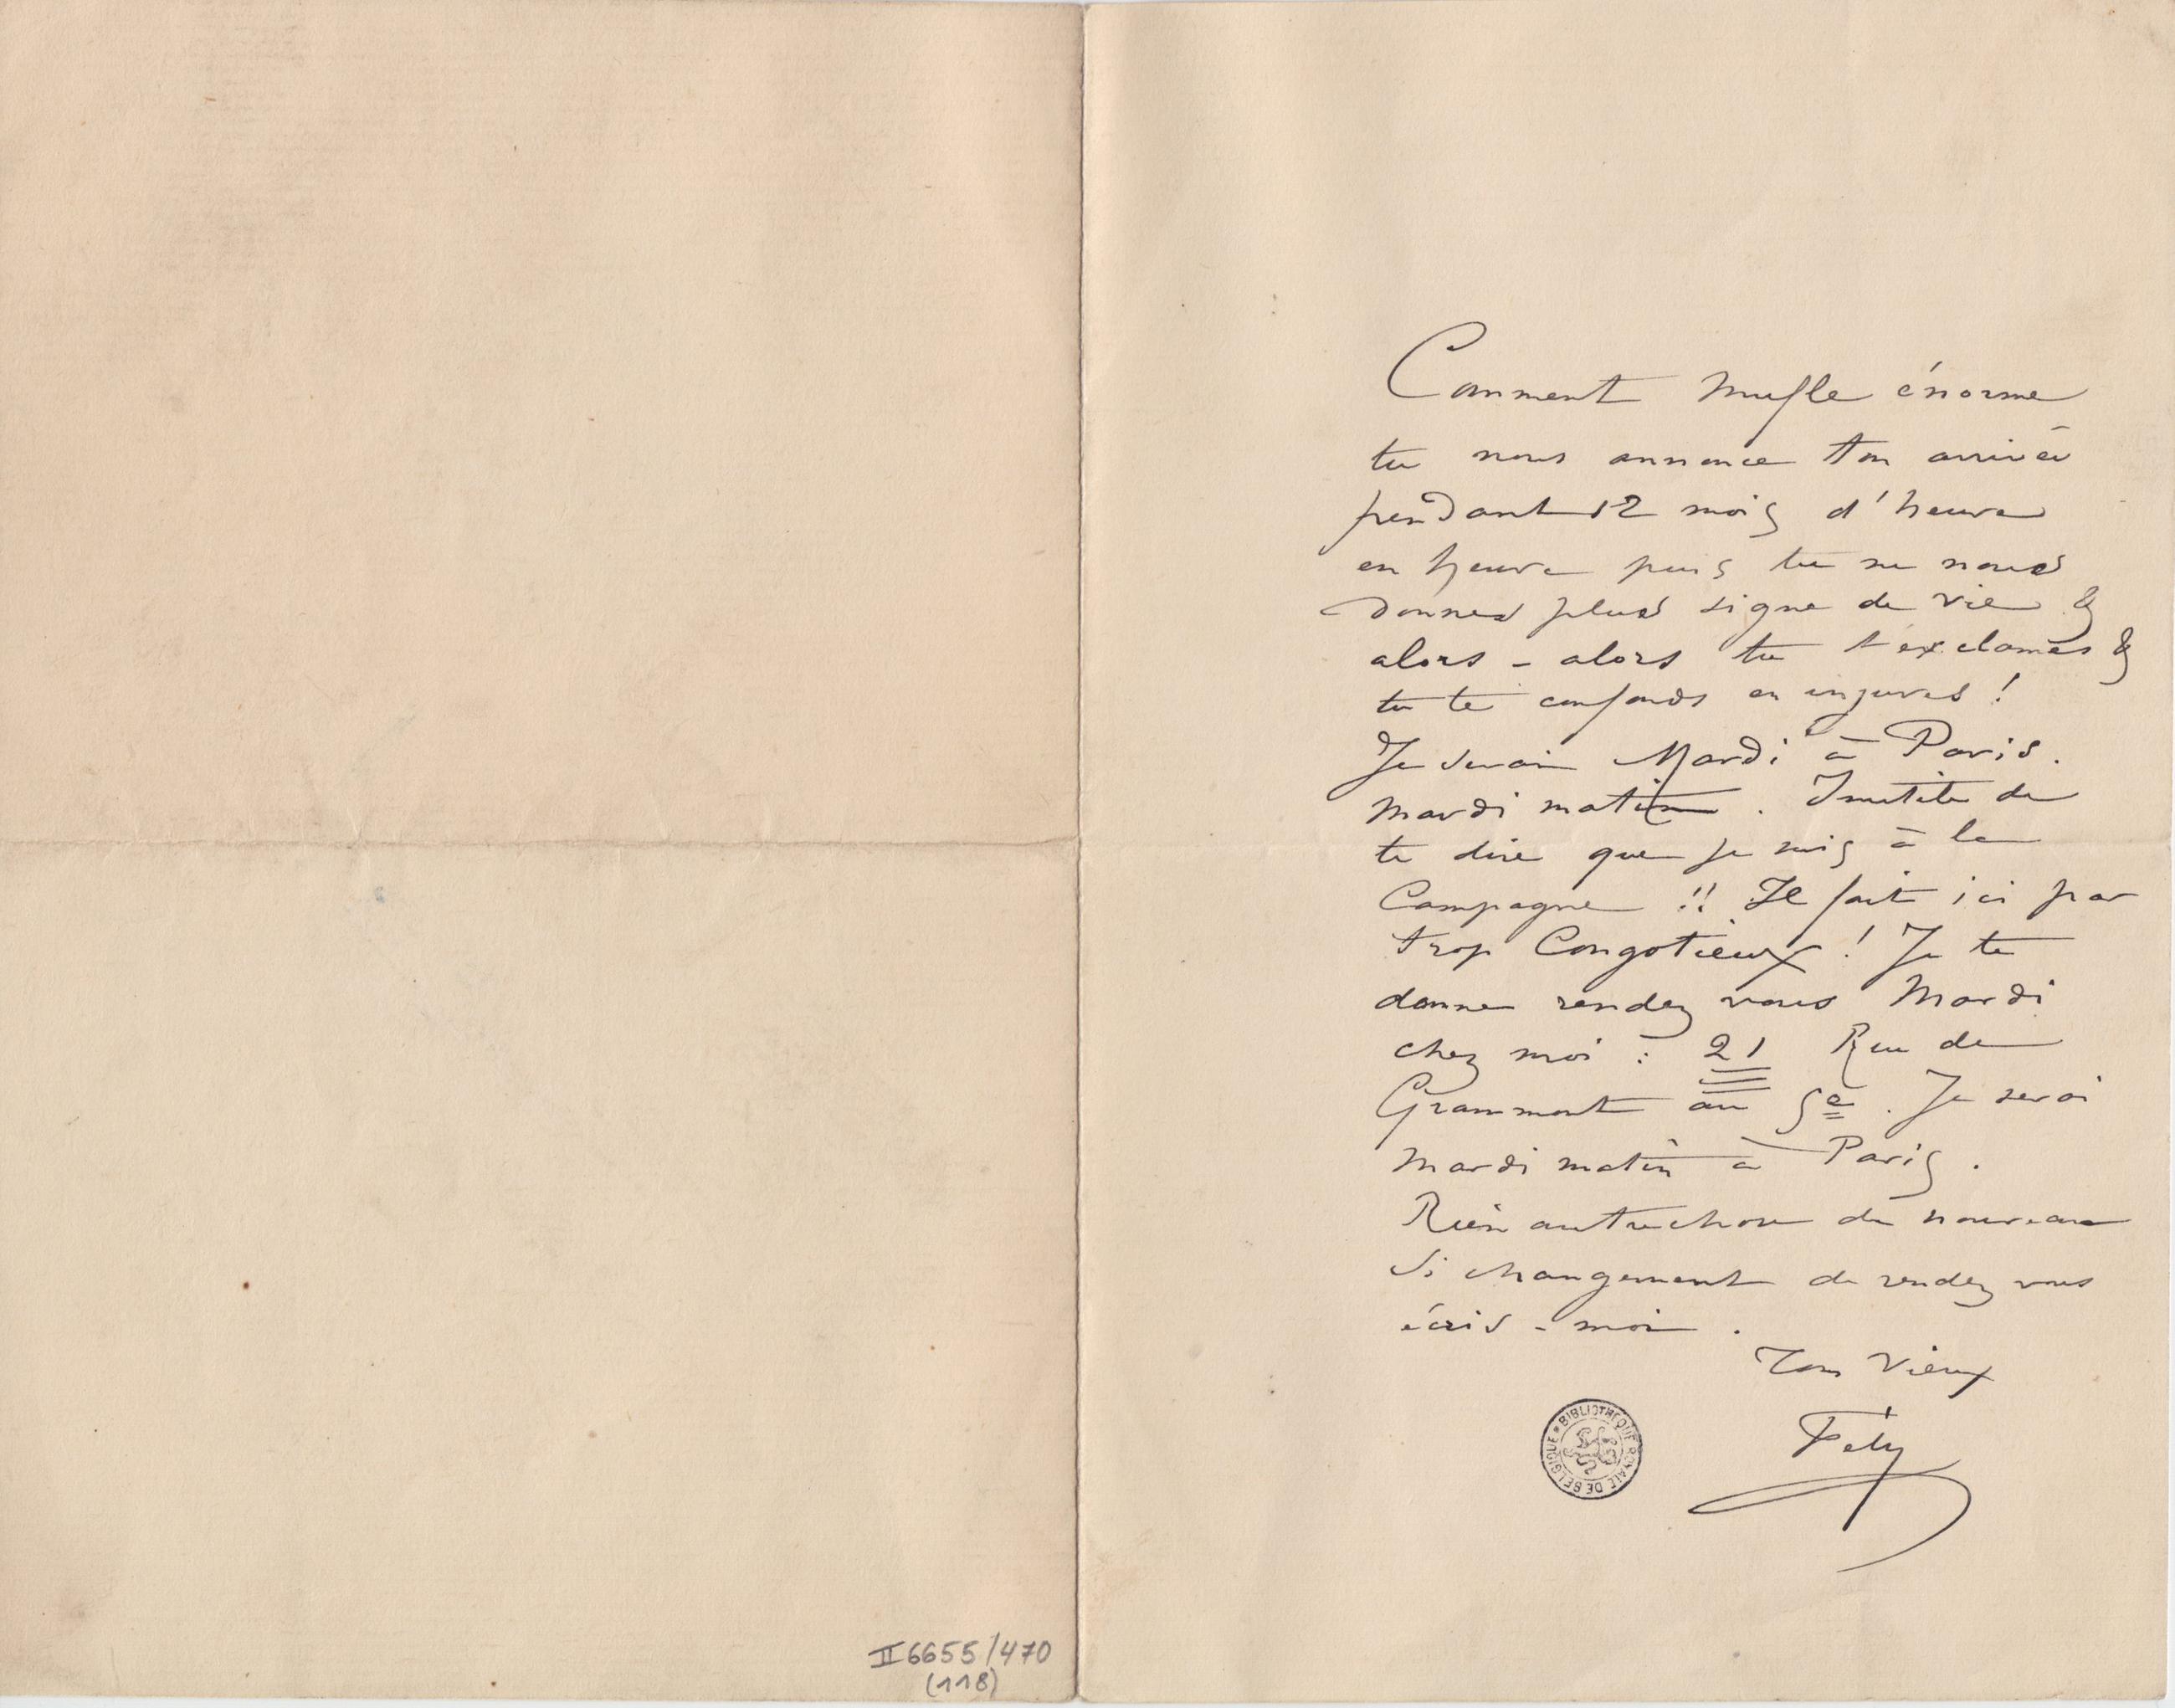 Comment Mufle énorme
tu nous annonce ton arrivée
pendant 12 mois d'heure
en heure puis tu ne nous
donnes plus signe de vie &
alors - alors tu t'exclames &
tu te confonds en injures !
Je serai Mardi à Paris.
Mardi matin. Inutile de
te dire que je suis à la
Campagne !! Il fait ici par
trop Congotieux ! Je te
donne rendez vous Mardi
chez moi : 21 Rue de
Grammont au 5e. Je serai
Mardi matin à Paris.
Rien autre chose de nouveau
Si changement de rendez vous
écris-moi.
Ton Vieux
Fély
BIBLIOTHEQUE ROYALE DE BELGIQUE
II 6655/470
(118)